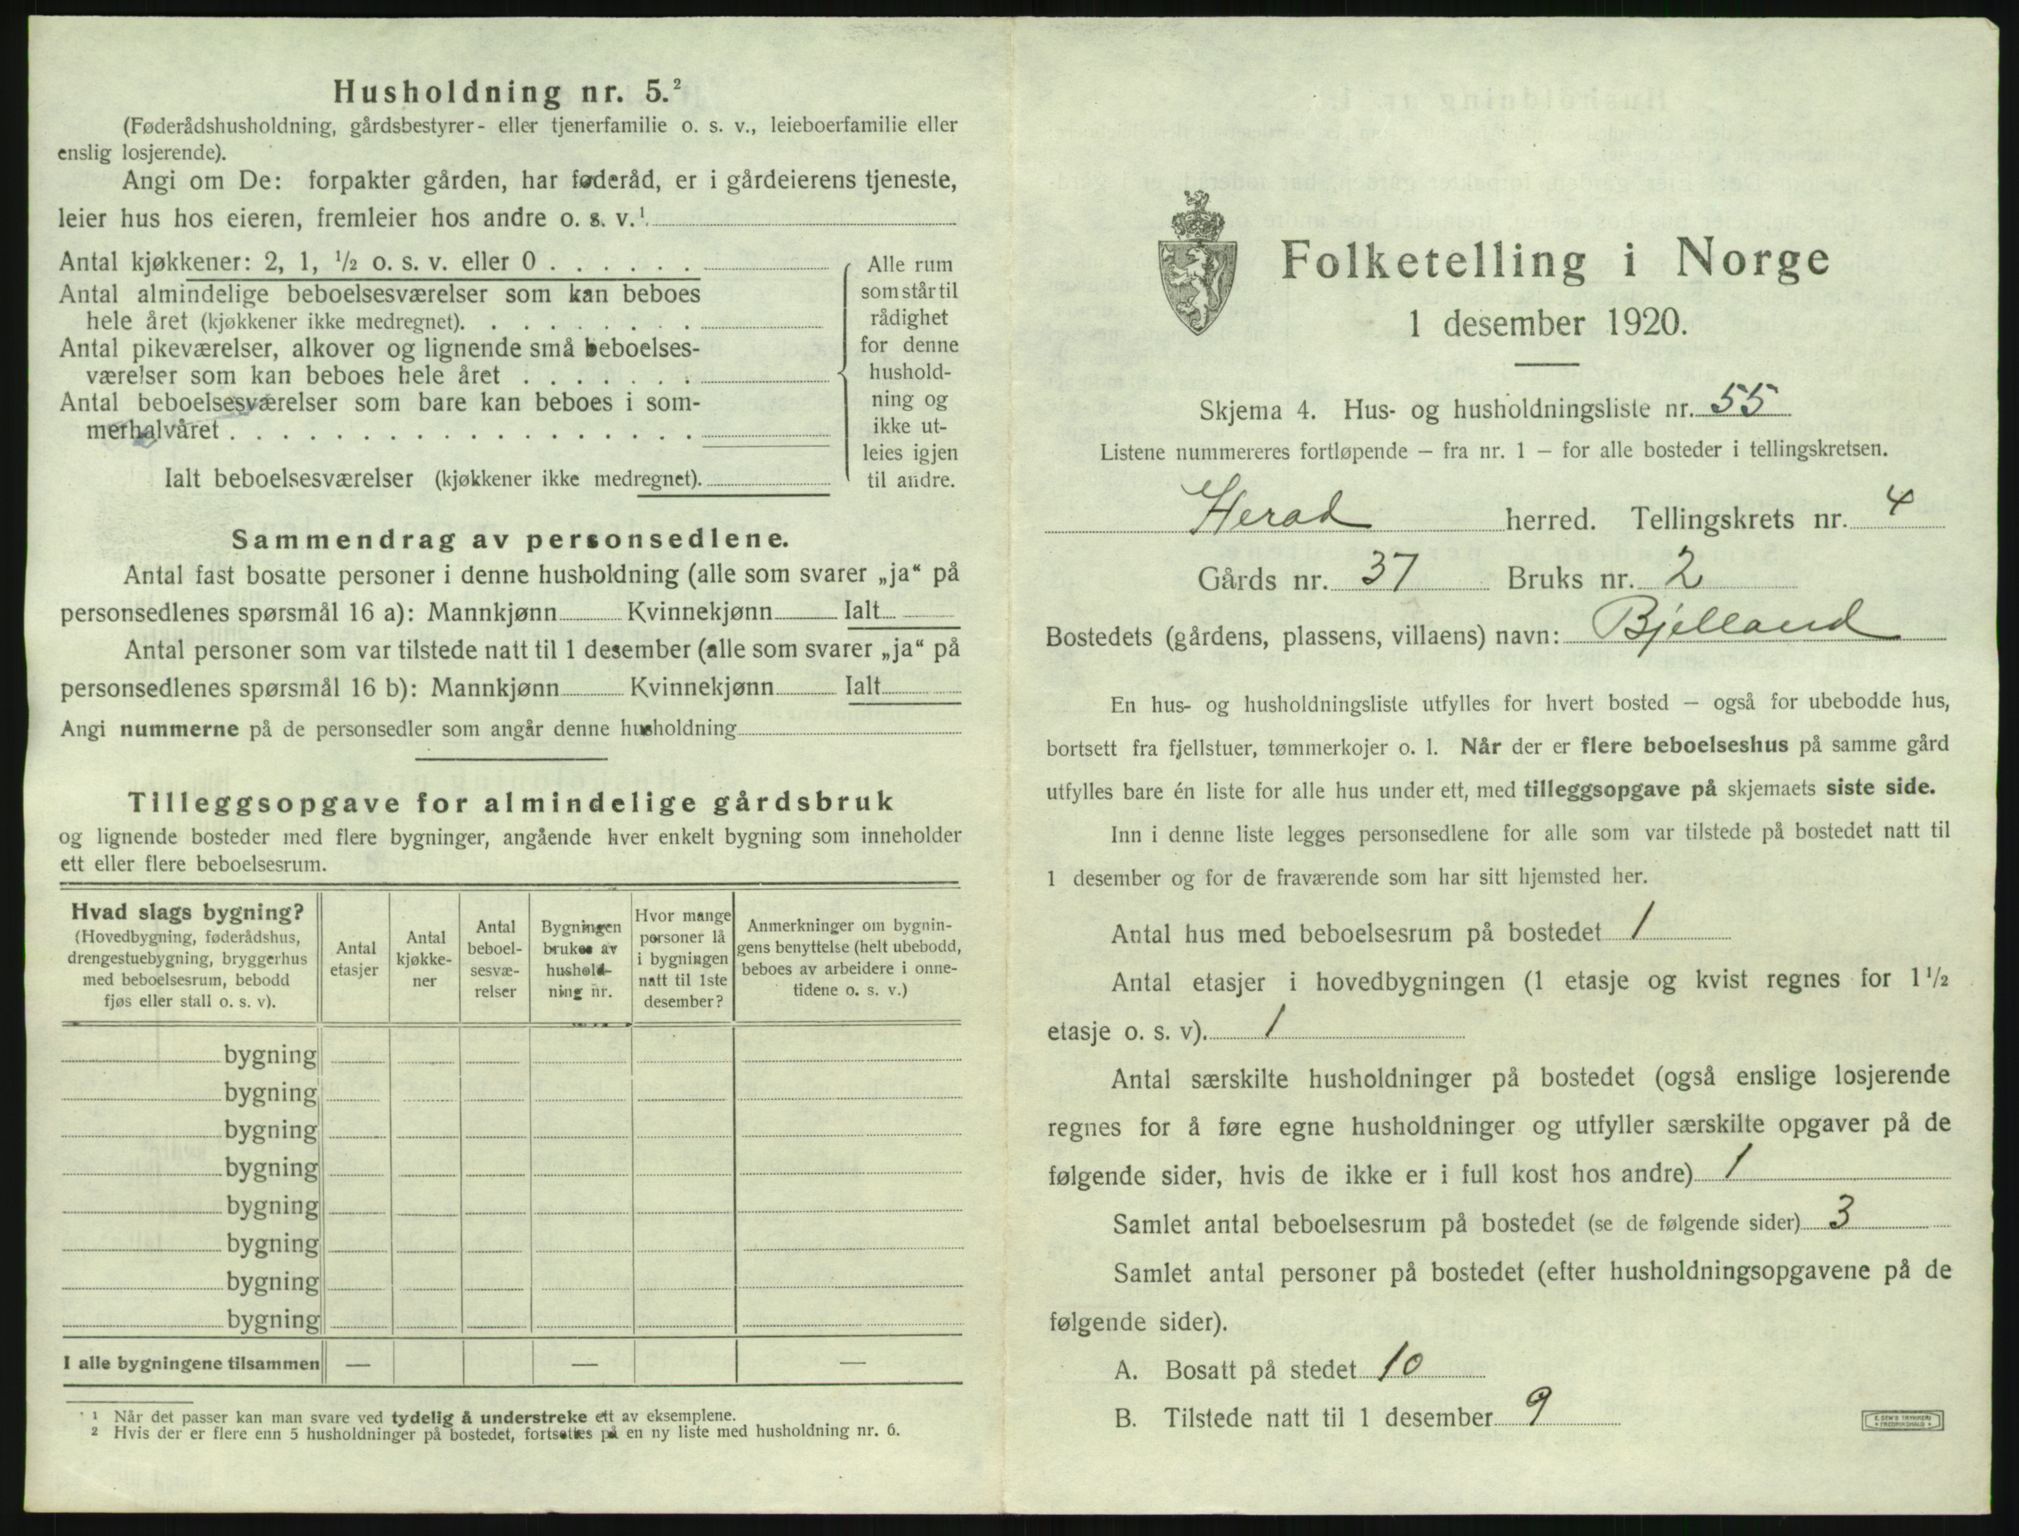 Husholdning nr. 5.²
(Føderådshusholdning, gårdsbestyrer- eller tjenerfamilie o. s. v., leieboerfamilie eller
enslig losjerende).
Angi om De: forpakter gården, har føderåd, er i gårdeierens tjeneste,
leier hus hos eieren, fremleier hos andre o. s. v.¹
Antal kjøkkener: 2, 1, ½ o. s. v. eller 0
Antal almindelige beboelsesværelser som kan beboes
hele året (kjøkkener ikke medregnet).
Antal pikeværelser, alkover og lignende små beboelses-
værelser som kan beboes hele året
Antal beboelsesværelser som bare kan beboes i som-
merhalvåret
Ialt beboelsesværelser (kjøkkener ikke medregnet).
Alle rum
som står til
rådighet
for denne
hushold-
ning og
ikke ut-
leies igjen
til andre.
Sammendrag av personsedlene.
Antal fast bosatte personer i denne husholdning (alle som svarer „ja“ på
personsedlenes spørsmål 16 a): Mannkjønn Kvinnekjønn Ialt
Antal personer som var tilstede natt til 1 desember (alle som svarer „ja“ på
personsedlenes spørsmål 16 b): Mannkjønn Kvinnekjønn Ialt
Angi nummerne på de personsedler som angår denne husholdning
Tilleggsopgave for almindelige gårdsbruk
og lignende bosteder med flere bygninger, angående hver enkelt bygning som inneholder
ett eller flere beboelsesrum.
Hvad slags bygning?
(Hovedbygning, føderådshus,
drengestuebygning, bryggerhus
med beboelsesrum, bebodd
fjøs eller stall o. s. v).
Antal
etasjer
Antal
kjøkke-
ner
Antal
beboel-
sesvæ-
relser
Bygningen
brukes av
hushold-
ning nr.
Hvor mange
personer lå
i bygningen
natt til 1ste
desember?
Anmerkninger om bygnin-
gens benyttelse (helt ubebodd,
beboes av arbeidere i onne-
tidene o. s. v.)
bygning
bygning
bygning
bygning
bygning
bygning
bygning
bygning
I alle bygningene tilsammen — — —
¹ Når det passer kan man svare ved tydelig å understreke ett av eksemplene.
² Hvis der er flere enn 5 husholdninger på bostedet, fortsettes på en ny liste med husholdning nr. 6.
Folketelling i Norge
1 desember 1920.
Skjema 4. Hus- og husholdningsliste nr. 55
Listene nummereres fortløpende – fra nr. 1 – for alle bosteder i tellingskretsen.
Herad herred. Tellingskrets nr. 4
Gårds nr. 37 Bruks nr. 2
Bostedets (gårdens, plassens, villaens) navn: Bjelland
En hus- og husholdningsliste utfylles for hvert bosted – også for ubebodde hus,
bortsett fra fjellstuer, tømmerkojer o. l. Når der er flere beboelseshus på samme gård
utfylles bare én liste for alle hus under ett, med tilleggsopgave på skjemaets siste side.
Inn i denne liste legges personsedlene for alle som var tilstede på bostedet natt til
1 desember og for de fraværende som har sitt hjemsted her.
Antal hus med beboelsesrum på bostedet 1
Antal etasjer i hovedbygningen (1 etasje og kvist regnes for 1½
etasje o. s. v). 1
Antal særskilte husholdninger på bostedet (også enslige losjerende
regnes for å føre egne husholdninger og utfyller særskilte opgaver på de
følgende sider, hvis de ikke er i full kost hos andre) 1
Samlet antal beboelsesrum på bostedet (se de følgende sider) 3
Samlet antal personer på bostedet (efter husholdningsopgavene på de
følgende sider).
A. Bosatt på stedet 10
B. Tilstede natt til 1 desember 9